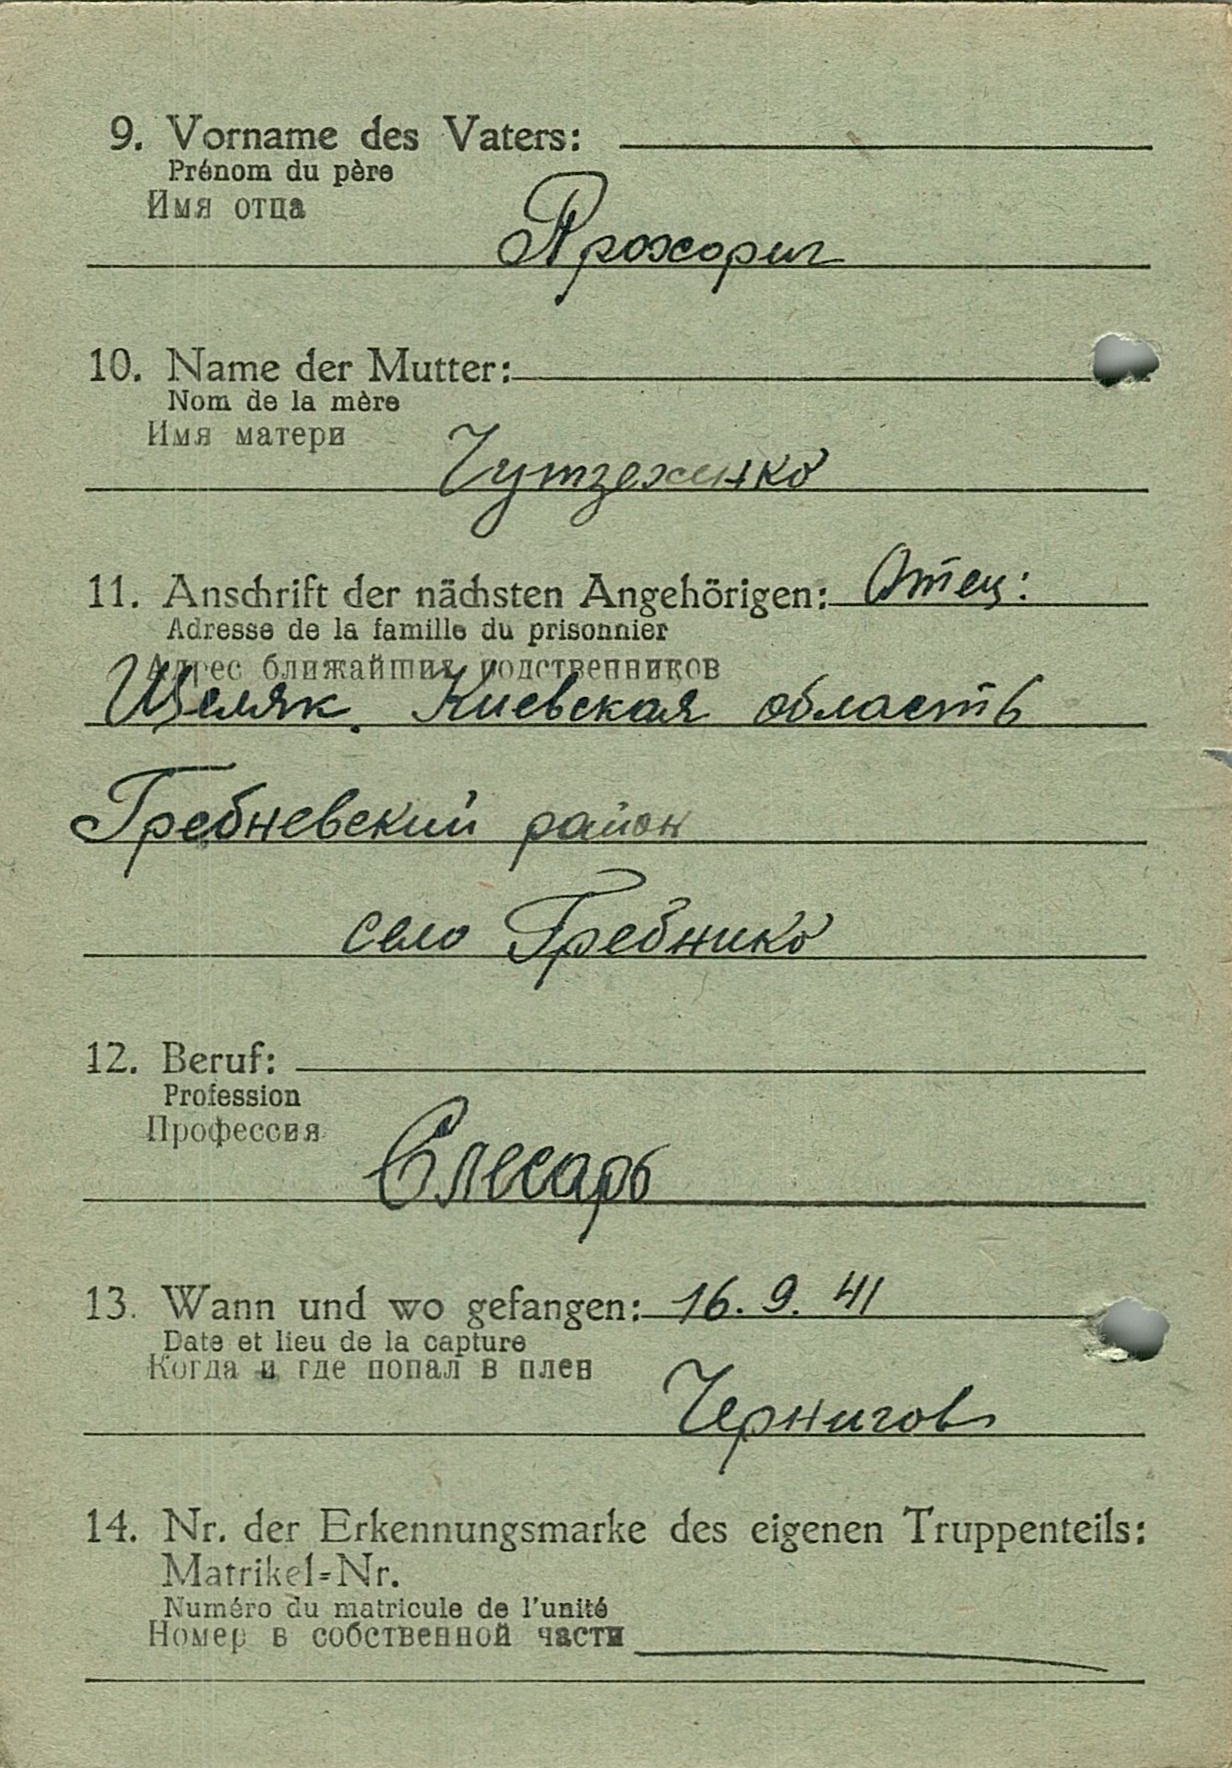 9. Vorname des Vaters:
Prénom du père
Имя отца
Прохорич
10. Name der Mutter:
Nom de la mère
Имя матери
11. Anschrift der nächsten Angehörigen: Отец:
Adresse de la famille du prisonnier
Адрес ближайших родственников
Щеляк. Киевская область
Гребневский район
село Гребнико
12. Beruf:
Profession
Профессия
Слесарь
13. Wann und wo gefangen: 16. 9. 41
Date et lieu de la capture
Когда и где попал в плен
Чернигов
14. Nr. der Erkennungsmarke des eigenen Truppenteils:
Matrikel=Nr.
Numéro du matricule de l'unité
Номер в собственной части